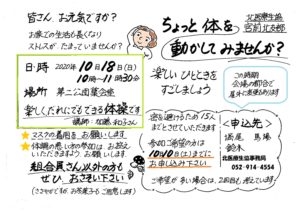 皆さん、お元気ですか?
お家での生活が長くなり
ストレスが たまっていませんか?
北医療生協
ちょっと体を
動かしてみませんか?
日時 2020年10月18日(日)
10時〜11時30分
場所
楽しくだれにでもできる体操です
講師:加藤 和子さん
楽しい ひとときを
すごしましょう
この時期
密を避けるため15人
までとさせていただきます
参加ご希望の方は
10/10(土)までに
お申し込み下さい
申込先
鈴木
北医療生協事務局
052-914-4554
マスクの着用を お願いします
体調の悪い方の参加は、お控え
いただきますよう お願いします。
組合員さん以外の方も
ぜひ おさそい下さい
(ささやかですが、お茶菓子もご用意します)
ご希望が多い場合は、2回目も考えています